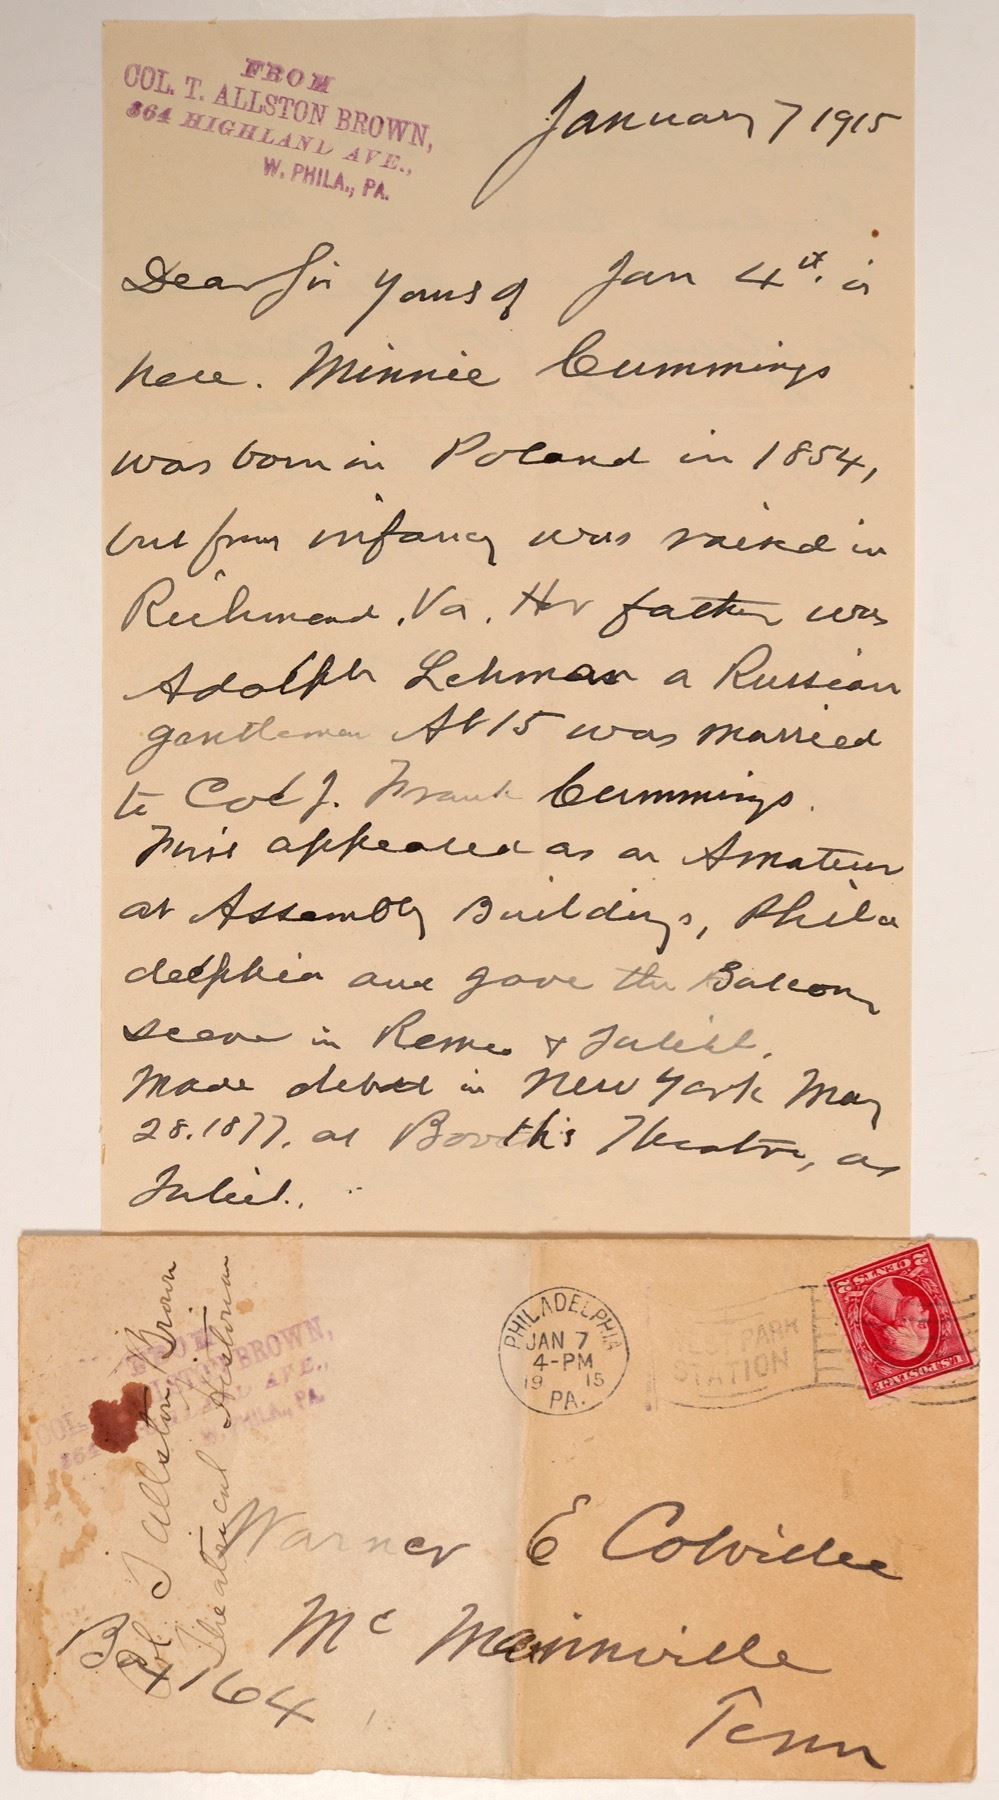 FROM
COL. T. ALLSTON BROWN,
364 HIGHLAND AVE.,
W. PHILA., PA.
January 7 1915
Dear Sir Yours of Jan 4th. is
here. Minnie Cummings
was born in Poland in 1854,
but from infancy was raised in
Richmond, Va. Her father was
Adolph Lehman a Russian
gentleman At 15 was married
to Col J. Frank Cummings.
First appeared as an Amateur
at Assembly Buildings, Phila
delphia and gave the Balcony
scene in Romeo & Juliet.
Made debut in New York May
28.1877. at Booth's Theatre, as
Juliet.
FROM
COL. T. ALLSTON BROWN,
364 HIGHLAND AVE.,
W. PHILA., PA.
Col. T Allston Brown
Theatrical Historian
PHILADELPHIA
JAN 7
4-PM
19 15
PA.
STATION
U.S. POSTAGE
2 CENTS 2
Warner E Colville
Mc Minnville
Tenn
Box 164